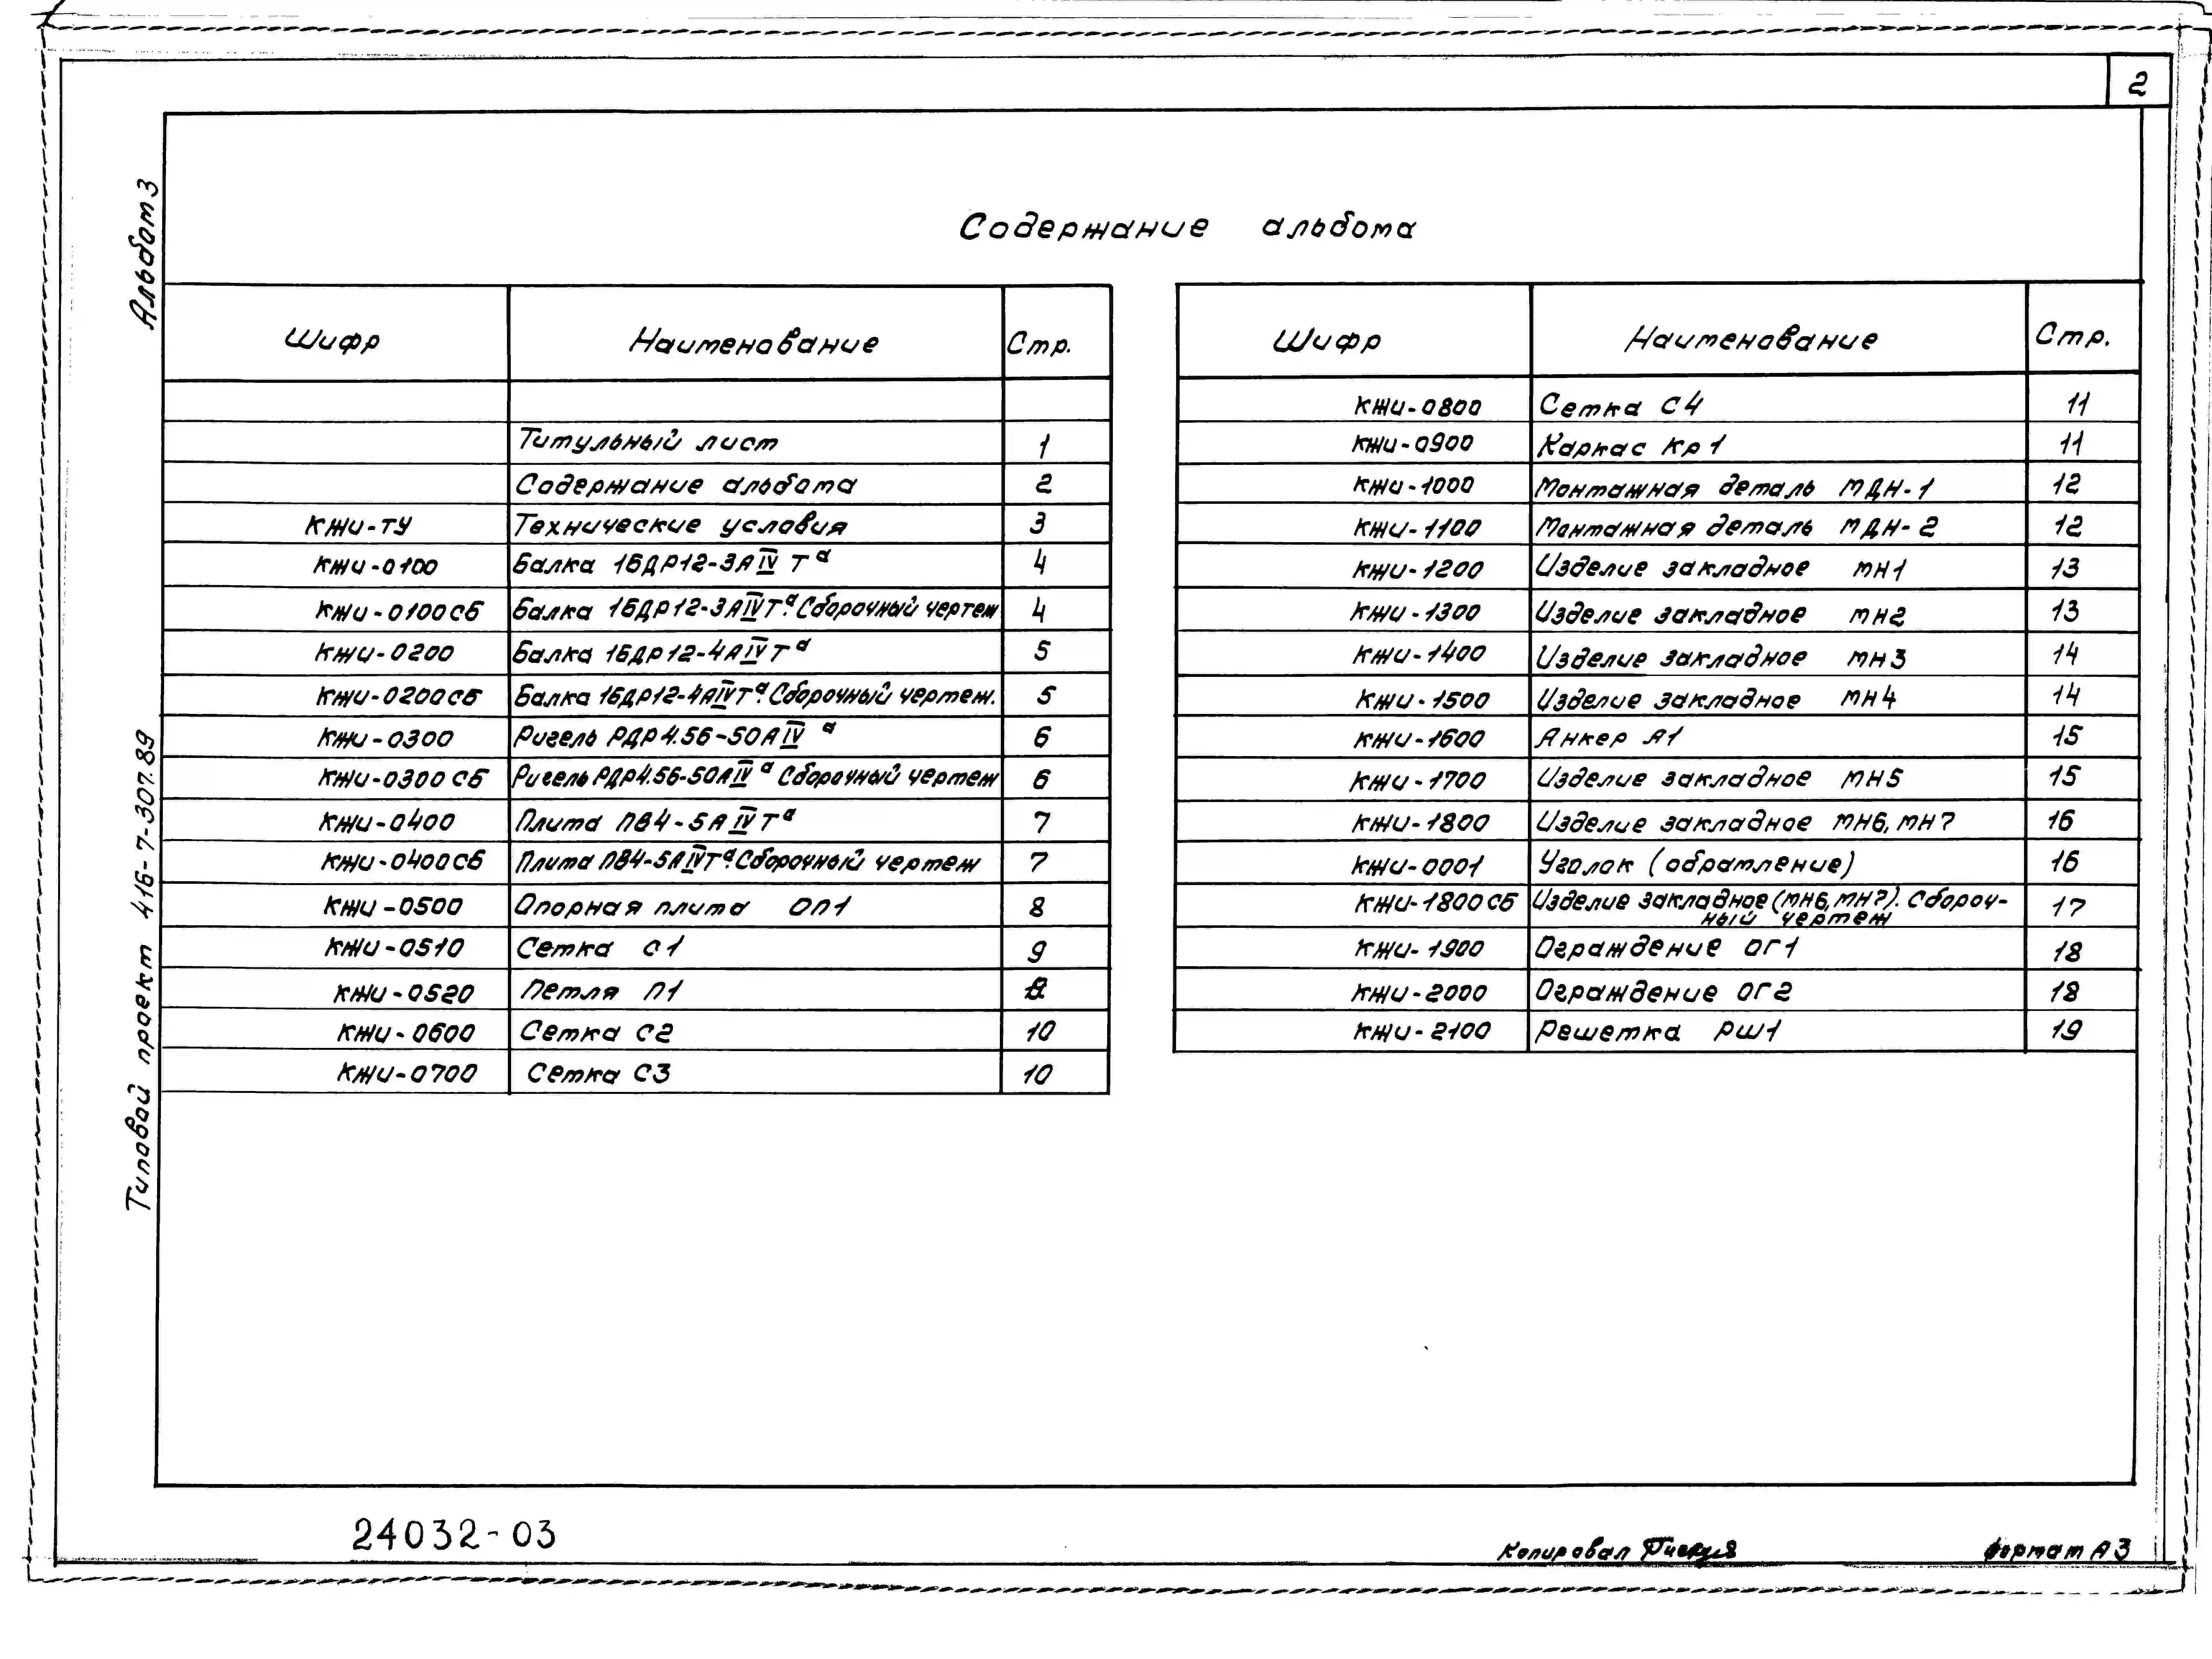 2
Альбом 3
Типовой проект 416-7-307.89
Содержание альбома
Шифр Наименование Стр.
Титульный лист 1
Содержание альбома 2
КЖИ-ТУ Технические условия 3
КЖИ-0100 Балка 1БДР12-3АIVТа 4
КЖИ-0100СБ Балка 1БДР12-3АIVТа. Сборочный чертеж 4
КЖИ-0200 Балка 1БДР12-4АIVТа 5
КЖИ-0200СБ Балка 1БДР12-4АIVТа. Сборочный чертеж. 5
КЖИ-0300 Ригель РДР4.56-50АIVа 6
КЖИ-0300СБ Ригель РДР4.56-50АIVа Сборочный чертеж 6
КЖИ-0400 Плита ПВ4-5АIVТа 7
КЖИ-0400СБ Плита ПВ4-5АIVТа. Сборочный чертеж 7
КЖИ-0500 Опорная плита ОП1 8
КЖИ-0510 Сетка С1 9
КЖИ-0520 Петля П1
КЖИ-0600 Сетка С2 10
КЖИ-0700 Сетка С3 10
Шифр Наименование Стр.
КЖИ-0800 Сетка С4 11
КЖИ-0900 Каркас Кр1 11
КЖИ-1000 Монтажная деталь МДН-1 12
КЖИ-1100 Монтажная деталь МДН-2 12
КЖИ-1200 Изделие закладное МН1 13
КЖИ-1300 Изделие закладное МН2 13
КЖИ-1400 Изделие закладное МН3 14
КЖИ-1500 Изделие закладное МН4 14
КЖИ-1600 Анкер А1 15
КЖИ-1700 Изделие закладное МН5 15
КЖИ-1800 Изделие закладное МН6, МН7 16
КЖИ-0001 Уголок (обрамление) 16
КЖИ-1800СБ Изделие закладное (МН6, МН7). Сбороч- 17
ный чертеж
КЖИ-1900 Ограждение ОГ1 18
КЖИ-2000 Ограждение ОГ2 18
КЖИ-2100 Решетка РШ1 19
24032-03
Копировал
Формат А3